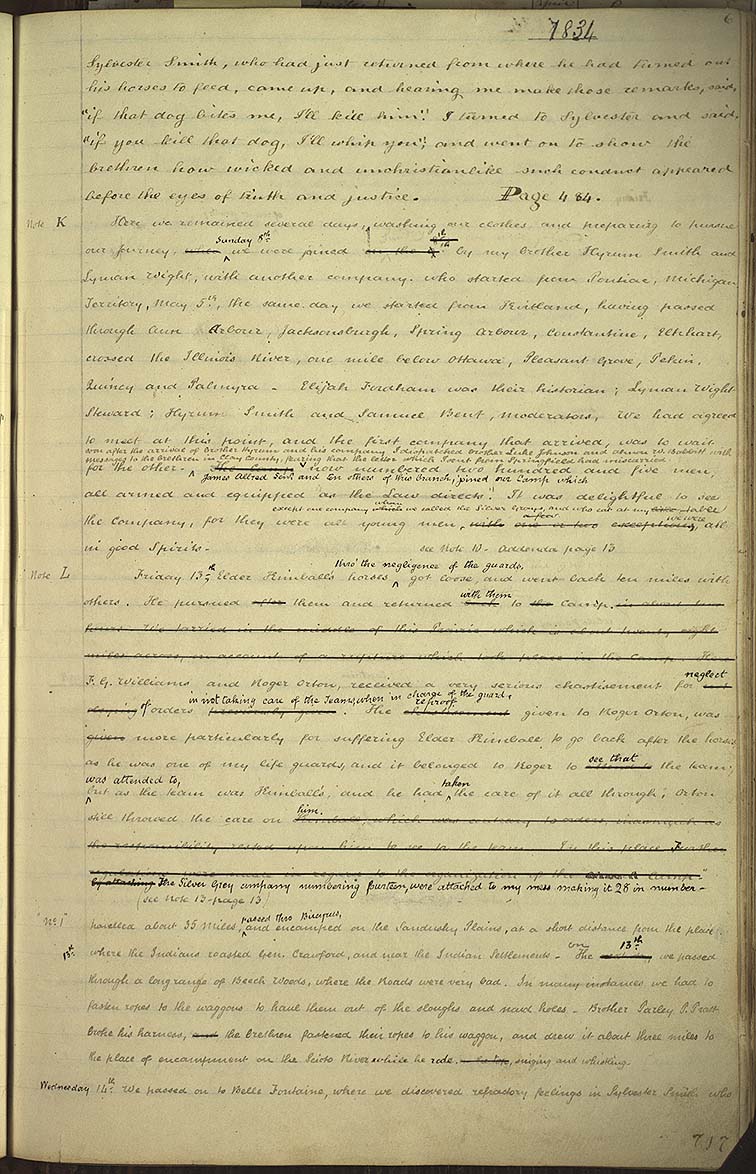 1834
Sylvester Smith, who had just returned from where he had turned out
his horses to feed, came up, and hearing me make those remarks, said,
"if that dog bites me, I'll kill him". I turned to Sylvester and said,
"if you kill that dog, I'll whip you", and went on to show the
brethren how wicked and unchristianlike such conduct appeared
before the eyes of truth and justice. Page 484.
Note K Here we remained several days, washing our clothes, and preparing to pursue
Sunday 8th
our journey, when we were joined on the 8th by my brother Hyrum Smith and
Lyman Wight, with another company. who started from Pontiac, Michigan
Territory, May 5th, the same day we started from Kirtland, having passed
through Ann Arbour, Jacksonsburgh, Spring Arbour, Constantine, Elkhart,
crossed the Illinois River, one mile below Ottawa, Pleasant Grove, Pekin,
Quincy and Palmyra - Elijah Fordham was their historian; Lyman Wight
Steward; Hyrum Smith and Samuel Bent, Moderators, We had agreed
to meet at this point, and the first company that arrived, was to wait
soon after the arrival of Brother Hyrum and his company, I dispatched brother Luke Johnson and Almon W. Babbitt with
messages to the brethren in Clay County, fearing that the letter which I sent from Springfield had miscarried.
for the other. The Camp now numbered two hundred and five men,
James Allred Senr. and Ten others of this branch, joined our Camp which
all armed and equipped as the Law directs. It was delightful to see
except one company whom we called the Silver Greys, and who eat at my table
the Company, for they were all young men, with one or two exceptions, all
a few we were
in good Spirits - see Note 10 - Addenda page 13
thro' the negligence of the guards,
Note L Friday 13th Elder Kimball's horses got loose, and went back ten miles with
with them
others. He pursued after them and returned to the Camp. in about two
hours We tarried in the middle of this Prairie which is about twenty eight
miles across, on account of a rupture which took place in the Camp. Here
neglect
F. G. Williams and Roger Orton, received a very serious chastisement for
in not taking care of the Teams, when in charge of the guard,
of orders previously given. The given to Roger Orton, was
reproof
given more particularly for suffering Elder Kimball to go back after the horses
as he was one of my life guards, and it belonged to Roger to see that the team,
was attended to,
taken
but as the team was Kimball's, and he had the care of it all through, Orton
him.
still throwed the care on Kimball, which was contrary to orders, inasmuch as
the responsibility rested upon him to see to the team In this place
The Silver Grey company numbering fourteen, were attached to my mess making it 28 in number -
(see Note 13 - page 13)
"No 1" travelled about 35 miles, passed thro Bucyrus, and encamped on the Sandusky Plains, at a short distance from the place
13th where the Indians roasted Gen. Crawford, and near the Indian Settlements - On The 13th we passed
through a long range of Beech Woods, where the Roads were very bad. In many instances we had to
fasten ropes to the waggons to haul them out of the sloughs and mud holes - Brother Parley P. Pratt
broke his harness, and the brethren fastened their ropes to his waggon, and drew it about three miles to
the place of encampment on the Scioto River while he rode, singing and whistling.
Wednesday 14th We passed on to Belle Fontaine, where we discovered refractory feelings in Sylvester Smith who
717